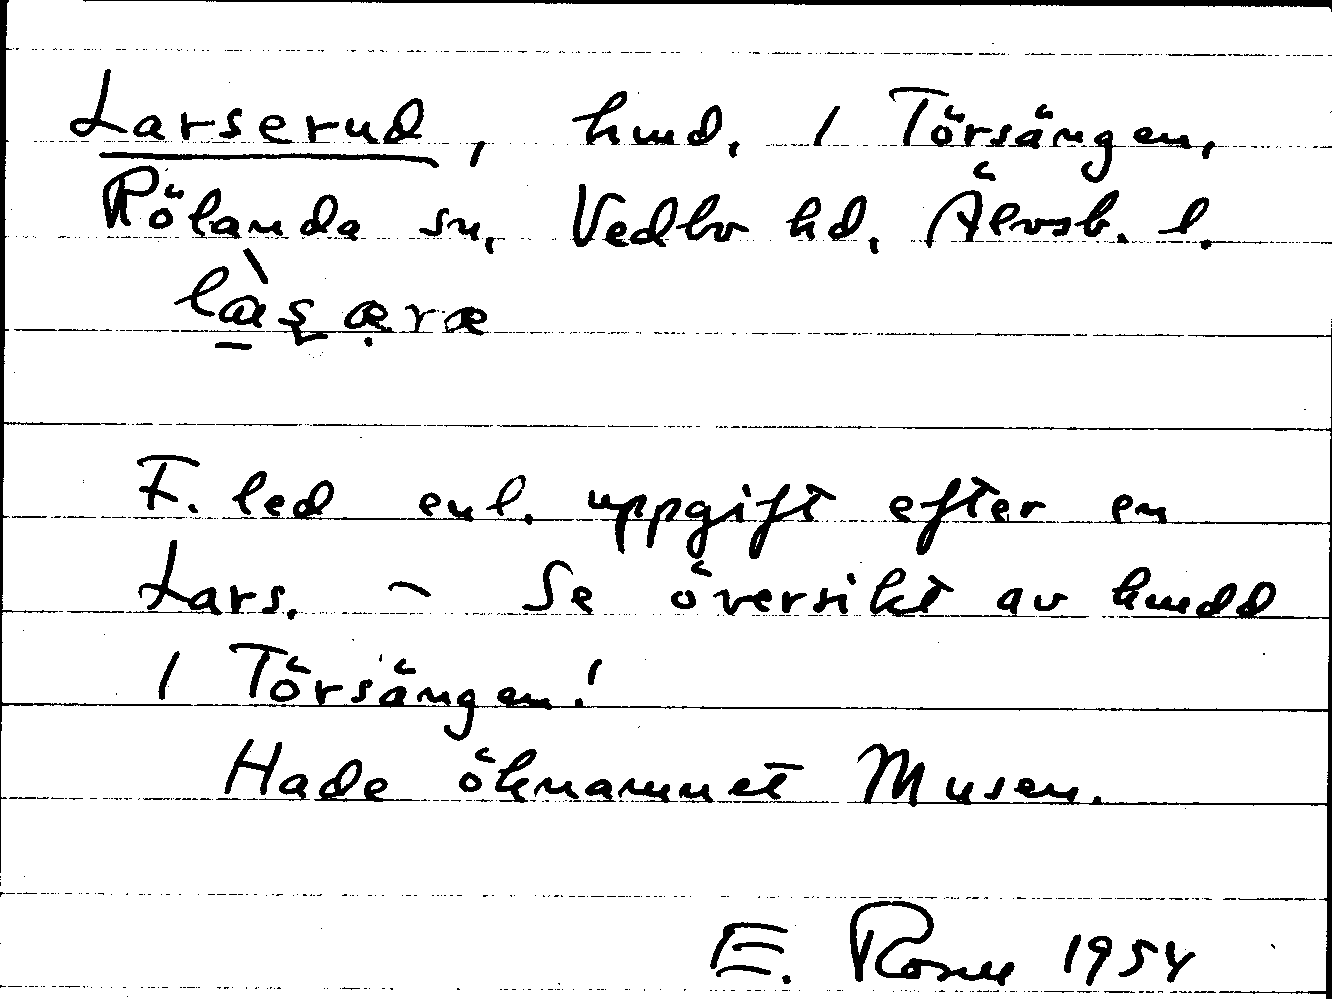 Larserud, hmd. 1 Törsängen,
Rölanda sn, Vedbo hd, Älvsb. l.
F. led enl. uppgift efter en
Lars. – Se översikt av hmdd
1 Törsängen!
Hade öknamnet Musen.
E. Rosell 1954